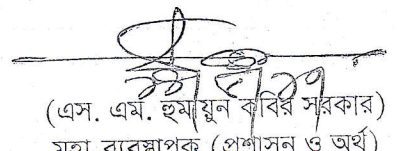 (এস. এম. হুমায়ুন কবির সরকার)
মহা ব্যবস্থাপক (প্রশাসন ও অর্থ)